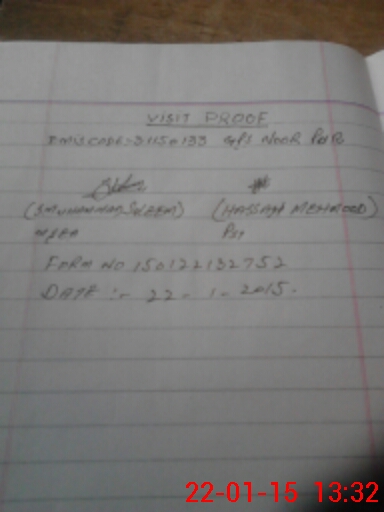 VISIT PROOF
EMIS CODE:- G/PS NOOR PUR
(HASSAN MEHMOOD)
MEA PST
FORM NO 150122132752
DATE :- 22 - 1 - 2015.
22-01-15 13:32